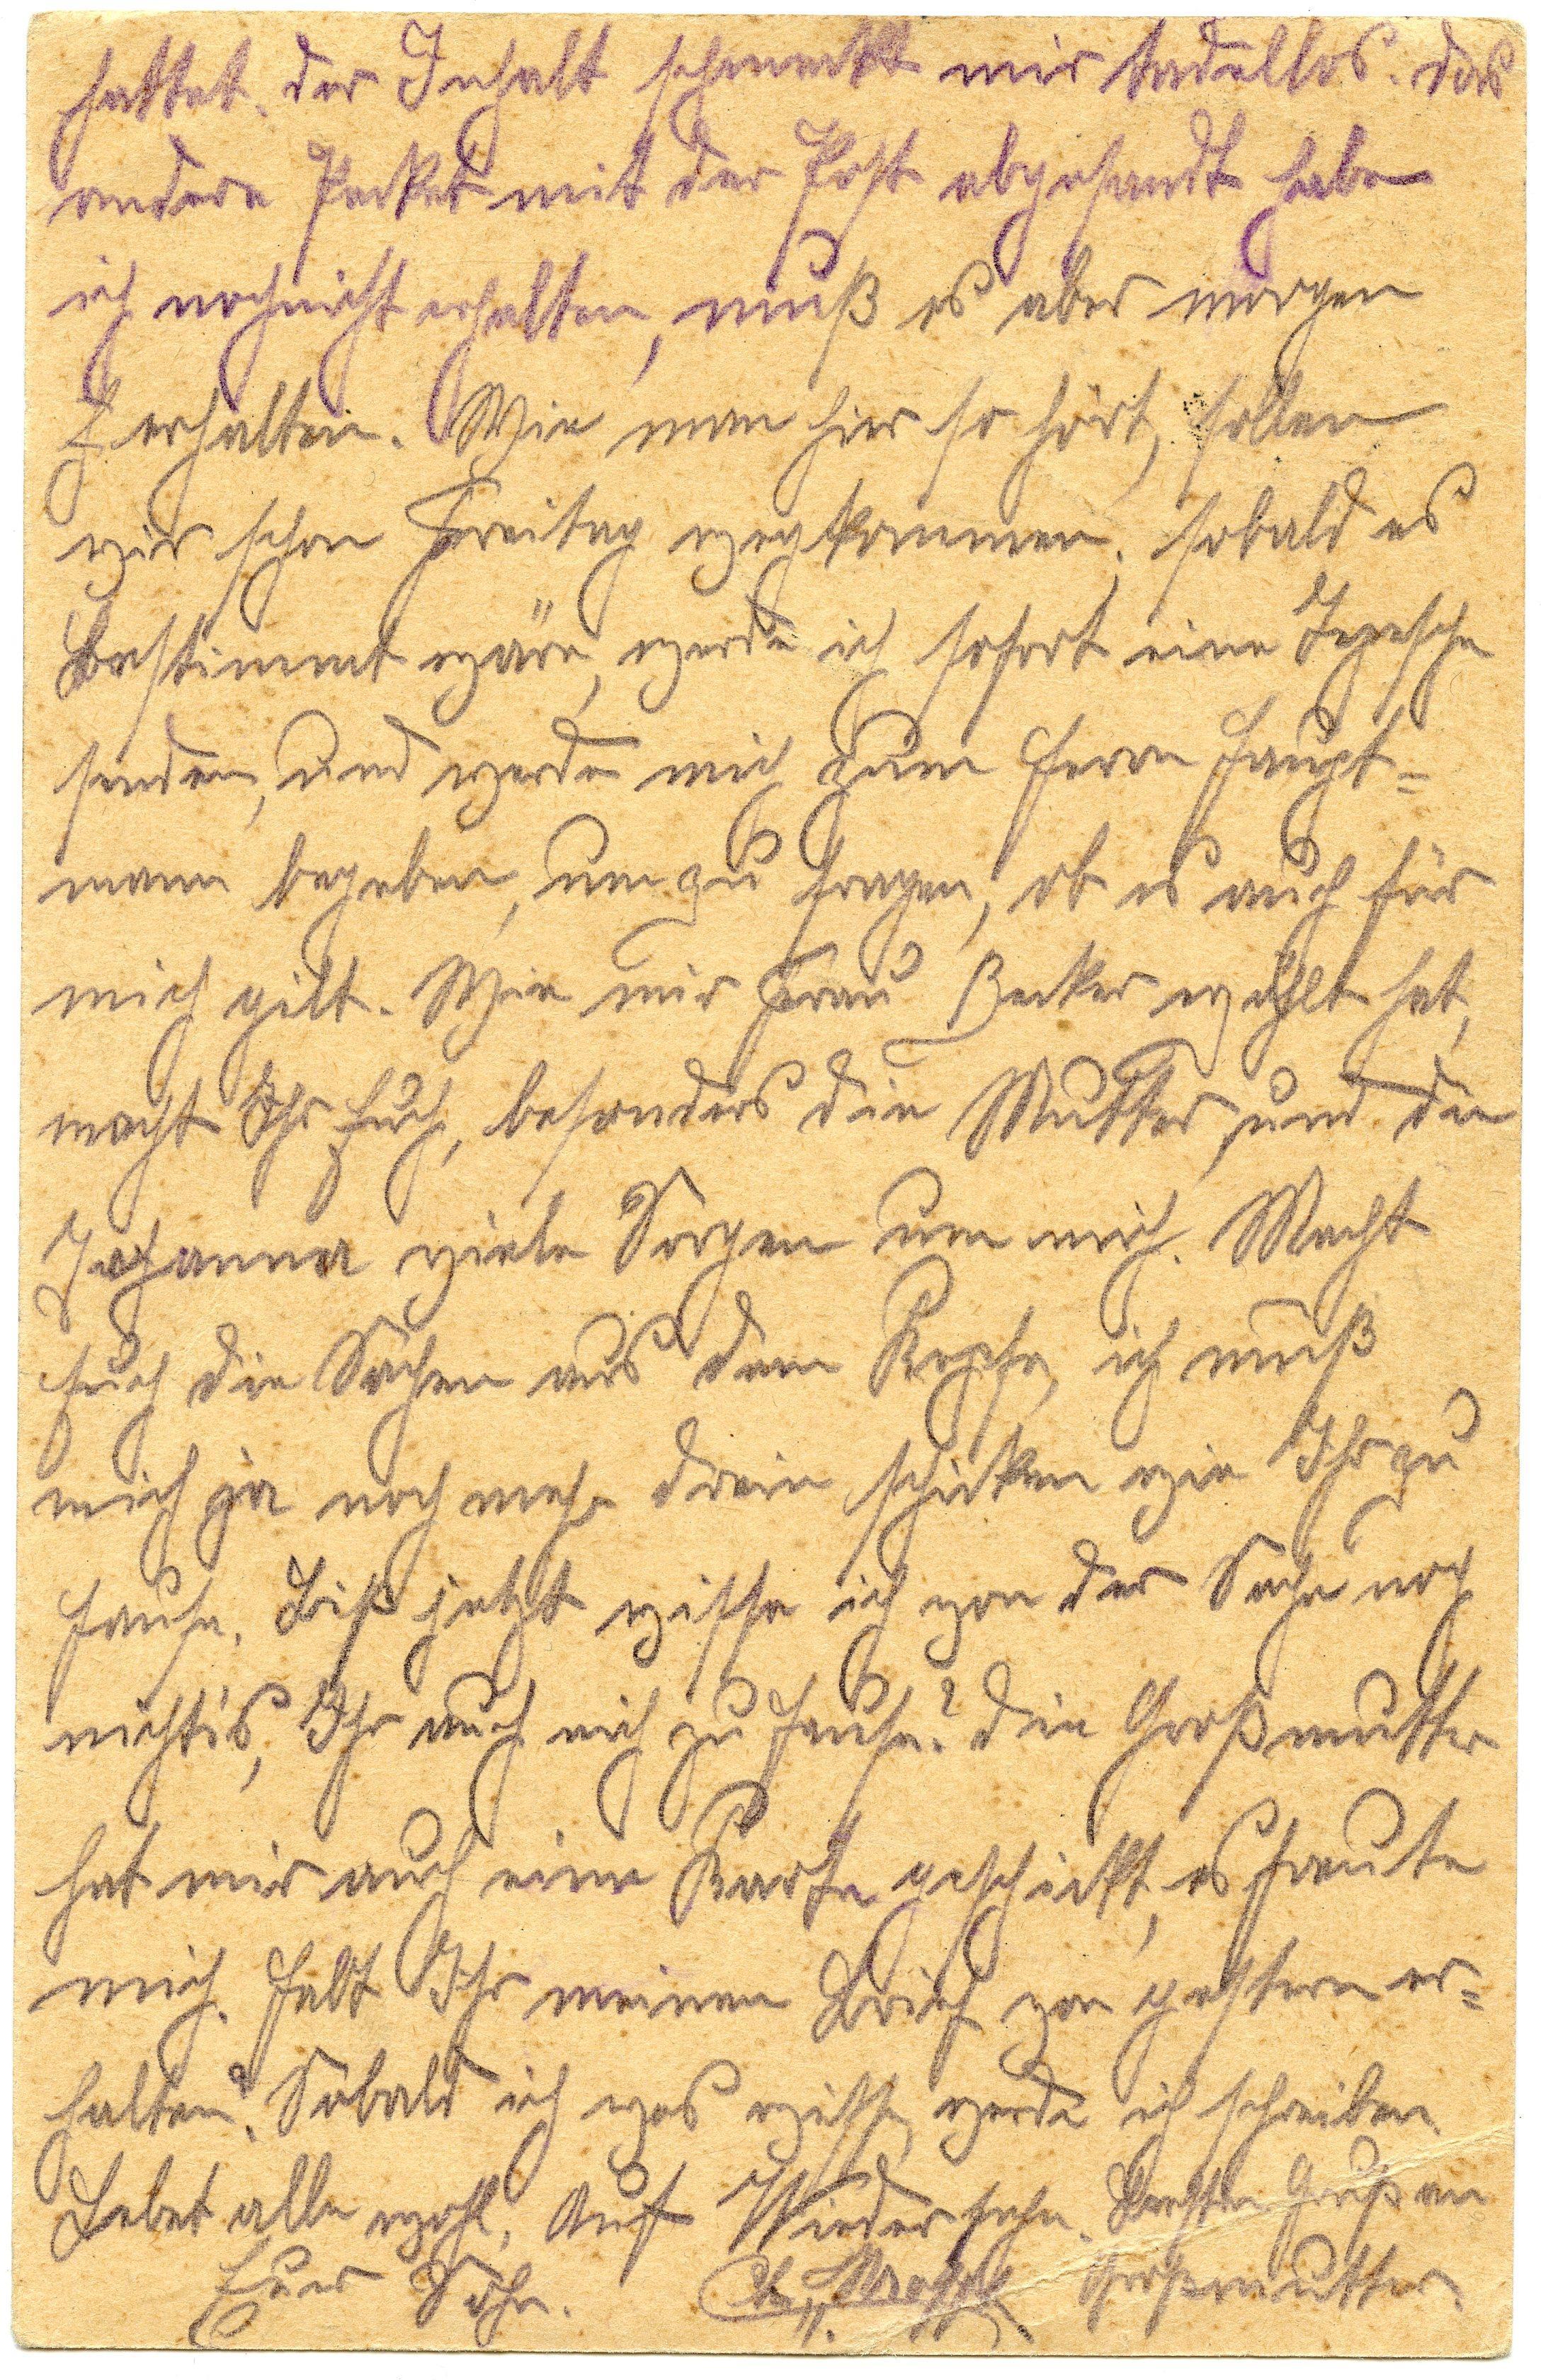 hattet. der Inhalt schmeckt mir tadellos. Das
andere Packet mit der Post abgesandt habe
ich noch nicht erhalten, muß es aber morgen
erhalten. Wie man hier so hört, sollen
wir schon Freitag wegkommen, sobald es
bestimmt wäre, werde ich sofort eine Depesche
senden, und werde mich zum Herrn Haupt=
mann begeben, um zu fragen, ob es auch für
mich gilt. Wie mir Frau Becker erzählt hat,
macht Ihr Euch, besonders die Mutter, und die
Johanna viele Sorgen um mich. Macht
Euch die Sachen aus dem Kopfe, ich muß
mich ja noch mehr drein schicken wie Ihr zu
Hause. Biß jetzt wisse ich von der Sache noch
nichts, Ihr auch nich zu Hause? die Großmutter
hat mir auch eine Karte geschickt, es freute
mich. Habt Ihr meinen Brief von gestern er=
halten? Sobald ich was wisse, werde ich schreiben.
Lebet alle wohl, Auf Wiedersehn. Besten Gruß an
Euer Sohn. Großmutter.